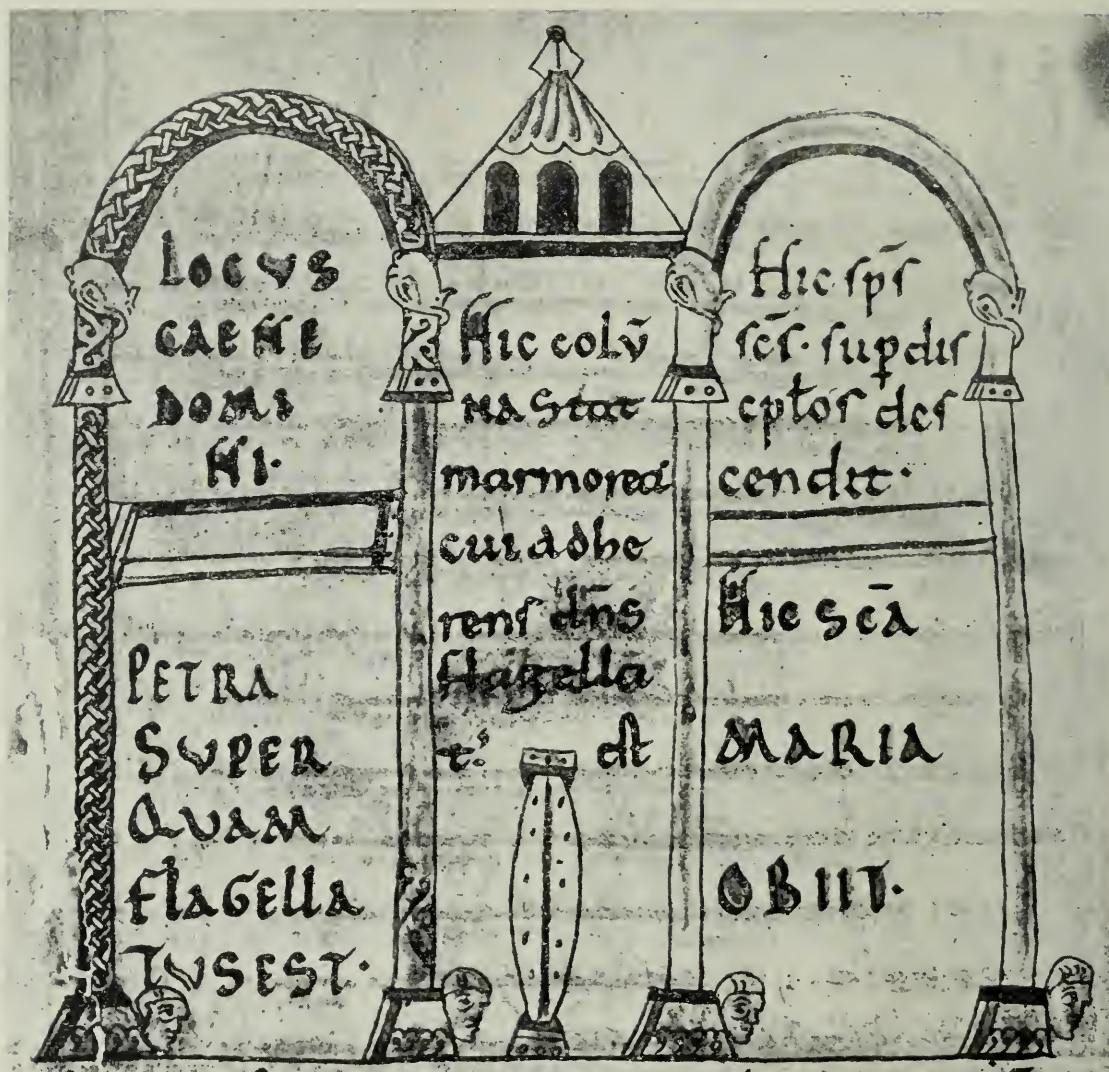 LOCUS
CAENE
DOMI
NI·
PETRA
SUPER
QUAM
FLAGELLA
TUS EST·
Hic colū
na stat
marmorea
cui adhe
rens dn̄s
flagella
t᷑ ÷ est
Hic sp̄s
sc̄s· sup̱ dis
cꝑłos des
cendit·
Hic Sc̄A
MARIA
OBIIT·